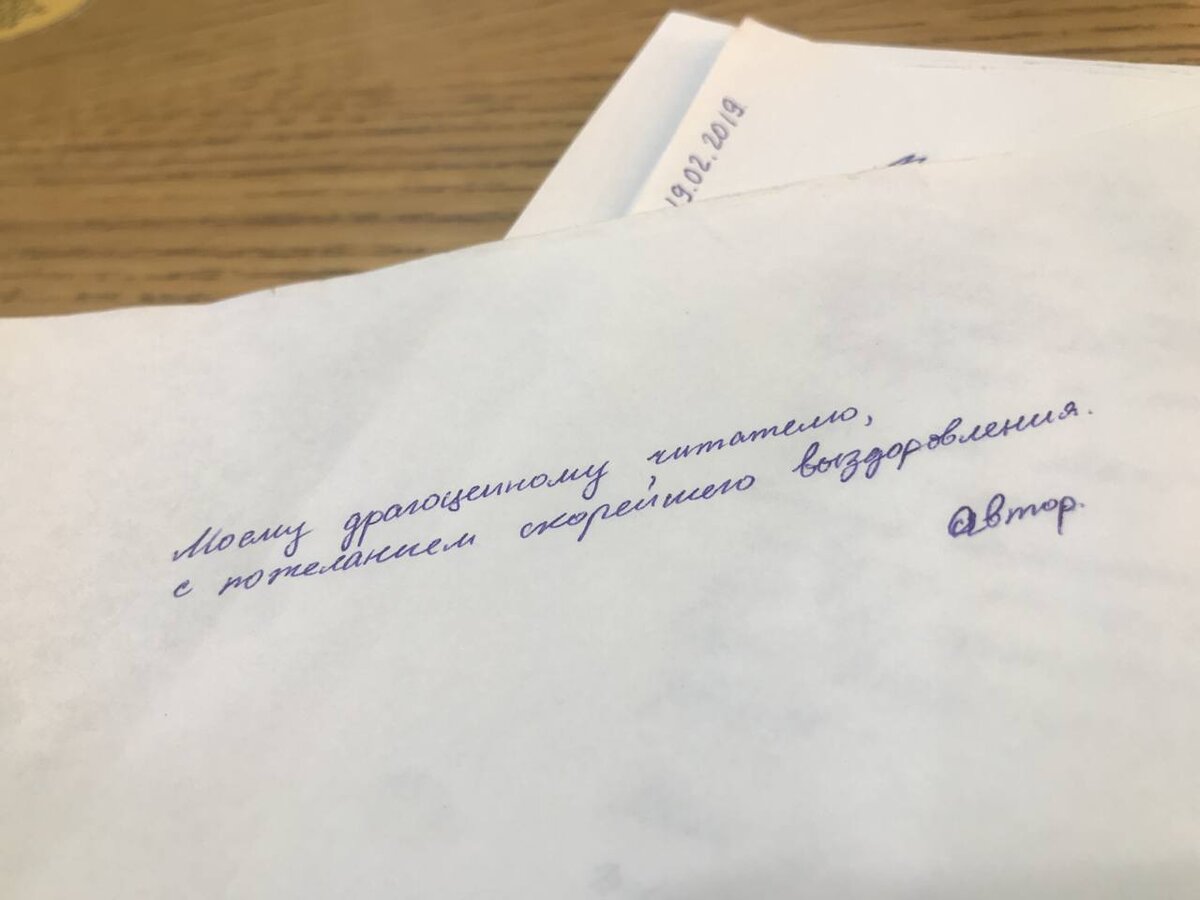 19.02.2019
Моему драгоценному читателю,
с пожеланием скорейшего выздоровления.
Автор.